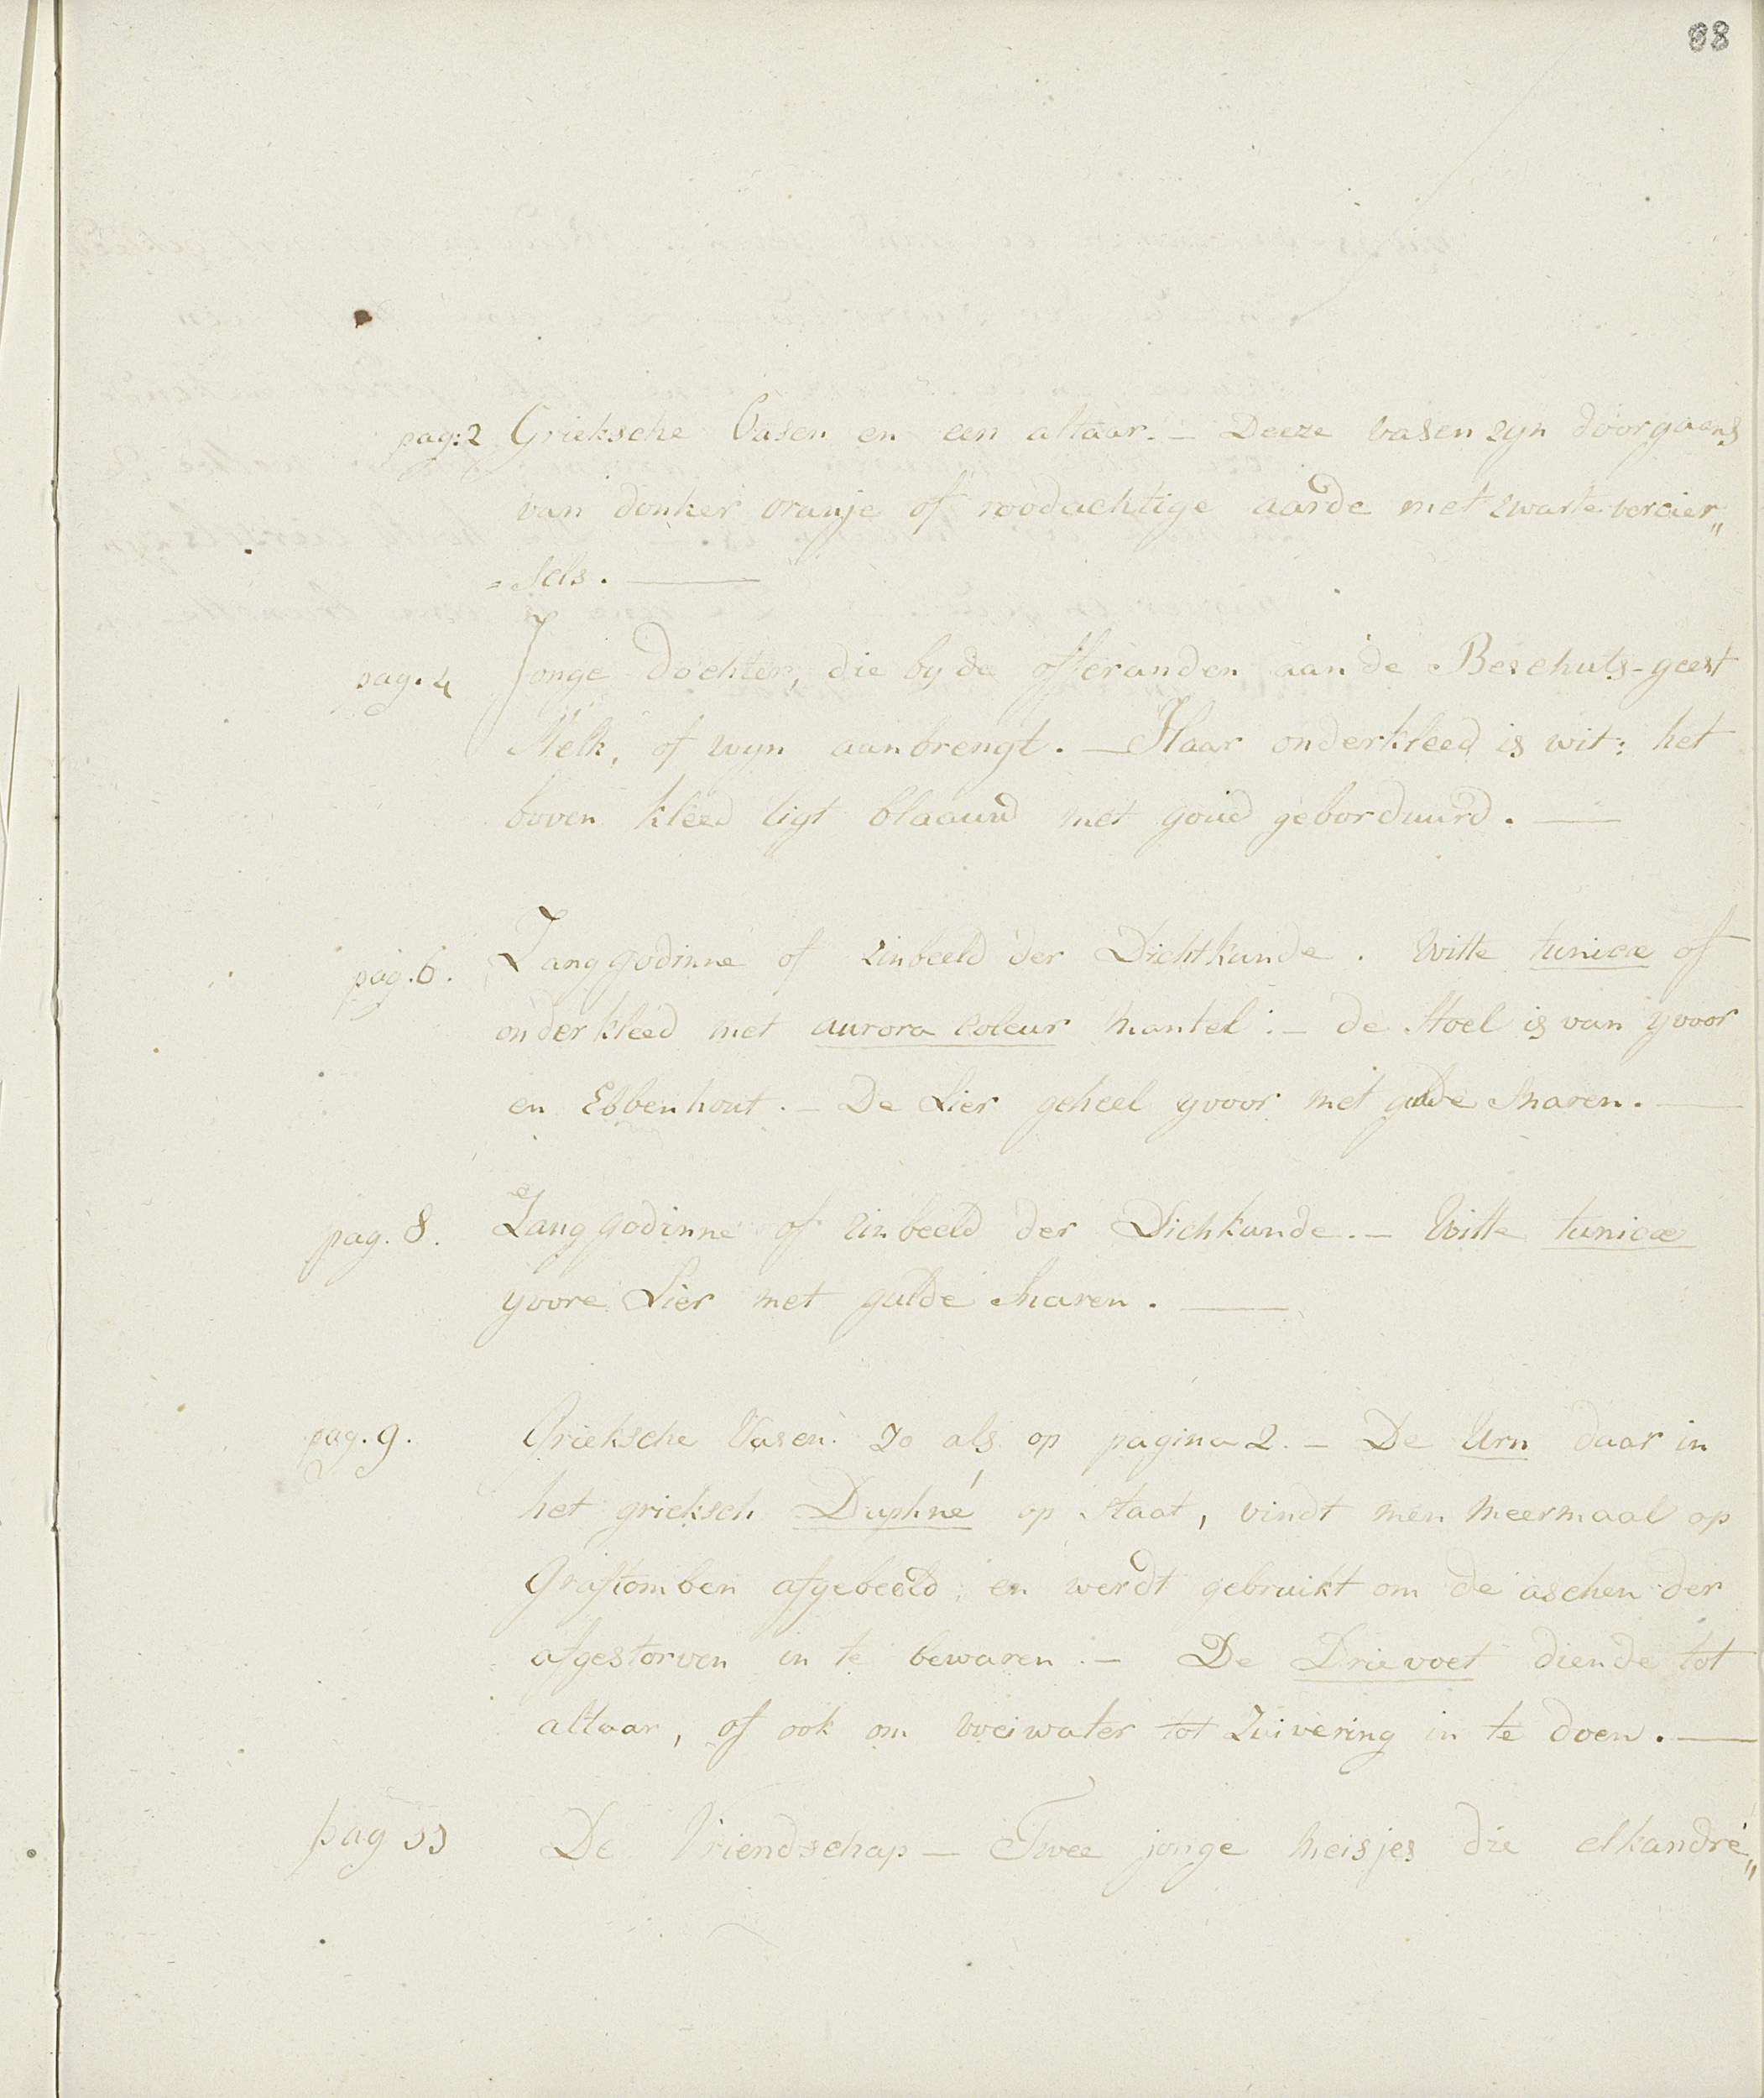 88
pag: 2 Grieksche Vasen en een altaar. — Deeze vasen zyn doorgaens
van donker oranje of roodachtige aarde met zwarte vercier„
= sels. —
pag. 4 Jonge dochter, die by de offeranden aan de Beschuts-geest
Melk, of wyn aanbrengt. — Haar onderkleed is wit: het
boven kleed ligt blaauw met goud geborduurd. —
pag. 6. Zanggodinne of zinbeeld der Dichtkunde. Witte tunicæ of
onderkleed met aurora coleur mantel: — de stoel is van yvoor
en Ebbenhout. — De Lier geheel yvoor met gulde snaren. —
pag. 8. Zanggodinne of zinbeeld der Dichkunde. — Witte tunicæ
yvore Lier met gulde snaren. —
pag. 9. Grieksche Vasen zo als op pagina 2. — De Urn daar in
het grieksch Daphné op staat, vindt men meermaal op
Graftomben afgebeeld, en werdt gebruikt om de aschen der
afgestorven in te bewaren. — De Drievoet diende tot
altaar, of ook om weiwater tot zuivering in te doen. —
pag 11 De Vriendschap — Twee jonge meisjes die elkandre„